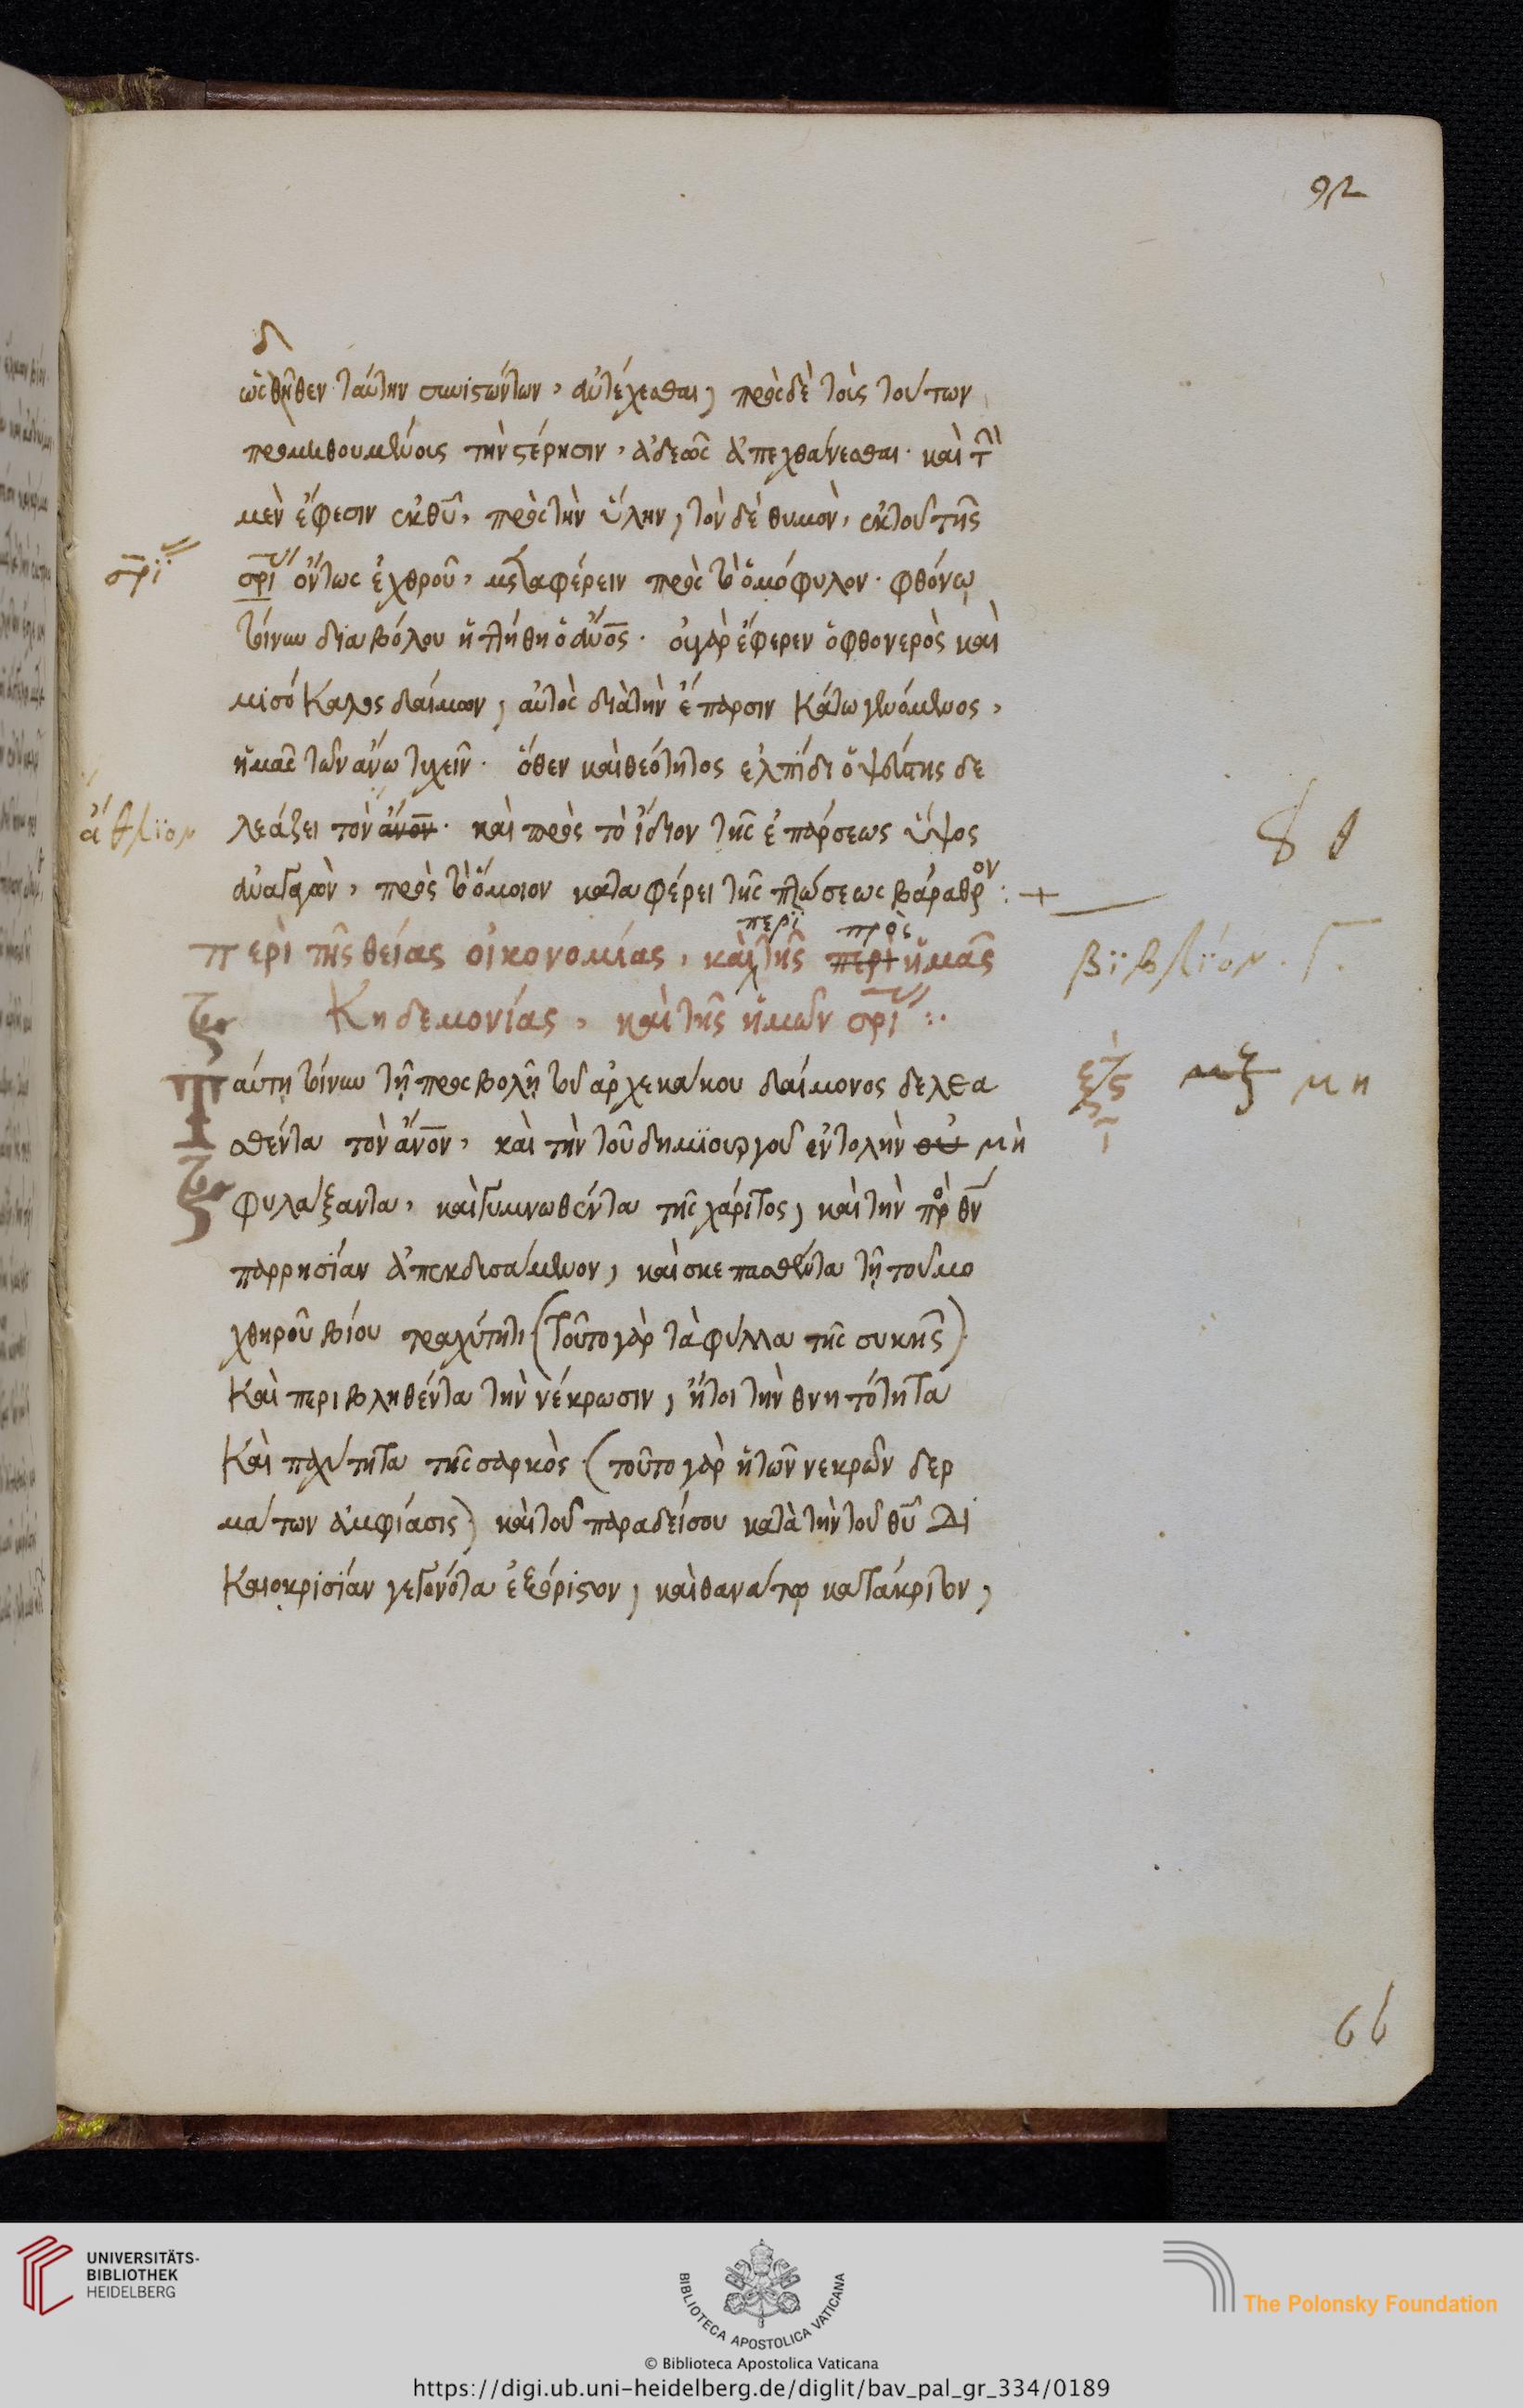 92
δ
ὡς θῆθεν ταύτην συνιστώντων, ἀντέχεσθαι, πρὸς δὲ τοὺς τούτων
προμηθουμένους τὴν στέρησιν, ἀδεῶς ἀπεχθαίνεσθαι. καὶ τὴν
μὲν ἔφεσιν ἐκ θῦ, πρὸς τὴν ὕλην, τὸν δὲ θυμὸν, ἐκ τοῦ τῆς
σρΐ
σρι ὄντως ἐχθροῦ, μεταφέρειν πρὸς τὸ ὁμόφυλον. φθόνῳ
τοίνυν διαβόλου ἡττήθη ὁ ἄνος. οὐ γὰρ ἔφερεν ὁ φθονερὸς καὶ
μισόκαλος δαίμων, αὐτὸς διὰ τὴν ἔπαρσιν κάτω γενόμενος,
ἡμᾶς τῶν ἄνω τυχεῖν. ὅθεν καὶ θεότητος ἐλπίδι ὁ ψεύστης δε
ἄθλϊον
λεάζει τὸν ἄνον. καὶ πρὸς τὸ ἴδιον τῆς ἐπάρσεως ὕψος
ἀναγαγὼν, πρὸς τὸ ὅμοιον καταφέρει τῆς πτώσεως βάραθρον : +
περὶ πρὸς
περὶ τῆς θείας οἰκονομίας, καὶ τῆς περὶ ἡμᾶς
βϊβλϊον. Γ.
Κηδεμονίας, καὶ τῆς ἡμῶν σρι :.
Ταύτῃ τοίνυν τῇ προσβολῇ τοῦ ἀρχεκάκου δαίμονος δελεα
μξ μη
σθέντα τὸν ἄνον, καὶ τὴν τοῦ δημϊουργοῦ ἐντολὴν οὐ μὴ
φυλάξαντα, καὶ γυμνωθέντα τῆς χάριτος, καὶ τὴν πρὸ θν
παρρησίαν ἀπεκδυσάμενον, καὶ σκεπασθέντα τῇ τοῦ μο
χθηροῦ βίου τραχύτητι (τοῦτο γὰρ τὰ φύλλα τῆς συκῆς)
Καὶ περιβληθέντα τὴν νέκρωσιν, ἤτοι τὴν θνητότητα
Καὶ παχύτητα τῆς σαρκὸς (τοῦτο γὰρ ἡ τῶν νεκρῶν δερ
μάτων ἀμφίασις) καὶ τοῦ παραδείσου κατὰ τὴν τοῦ θῦ Δι
Καιοκρισίαν γεγονότα ἐξόριστον, καὶ θανάτῳ κατάκριτον,
66
UNIVERSITÄTS-
BIBLIOTHEK
HEIDELBERG
BIBLIOTECA APOSTOLICA VATICANA
The Polonsky Foundation
© Biblioteca Apostolica Vaticana
https://digi.ub.uni-heidelberg.de/diglit/bav_pal_gr_334/0189